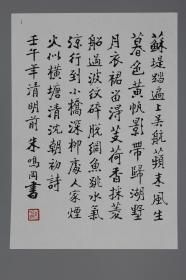 蘇堤踏遍上吳航蘋末風生
暮色黄帆影帶歸湖墅
月衣裙留得芰荷香採菱
船過波紋碎脱網魚跳水氣
涼行到小橋深柳處人家煙
火似横塘清沈朝初詩
壬午年清明前朱鳴岡書